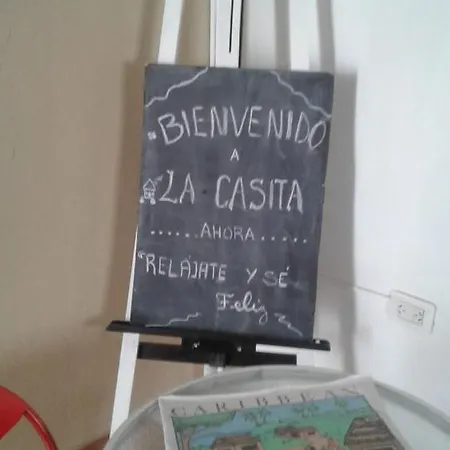 BIENVENIDO
A
LA CASITA
......AHORA.....
RELÁJATE Y SÉ
Feliz
CARIBBEA